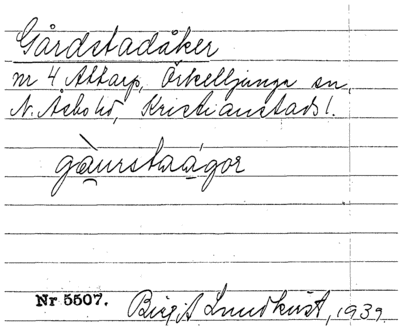 Gårdstadåker
nr 4 Attarp, Örkelljunga sn,
N. Åsbo hd, Kristianstads l.
gàurstaágor
Nr 5507. Birgit Lundkvist, 1939.